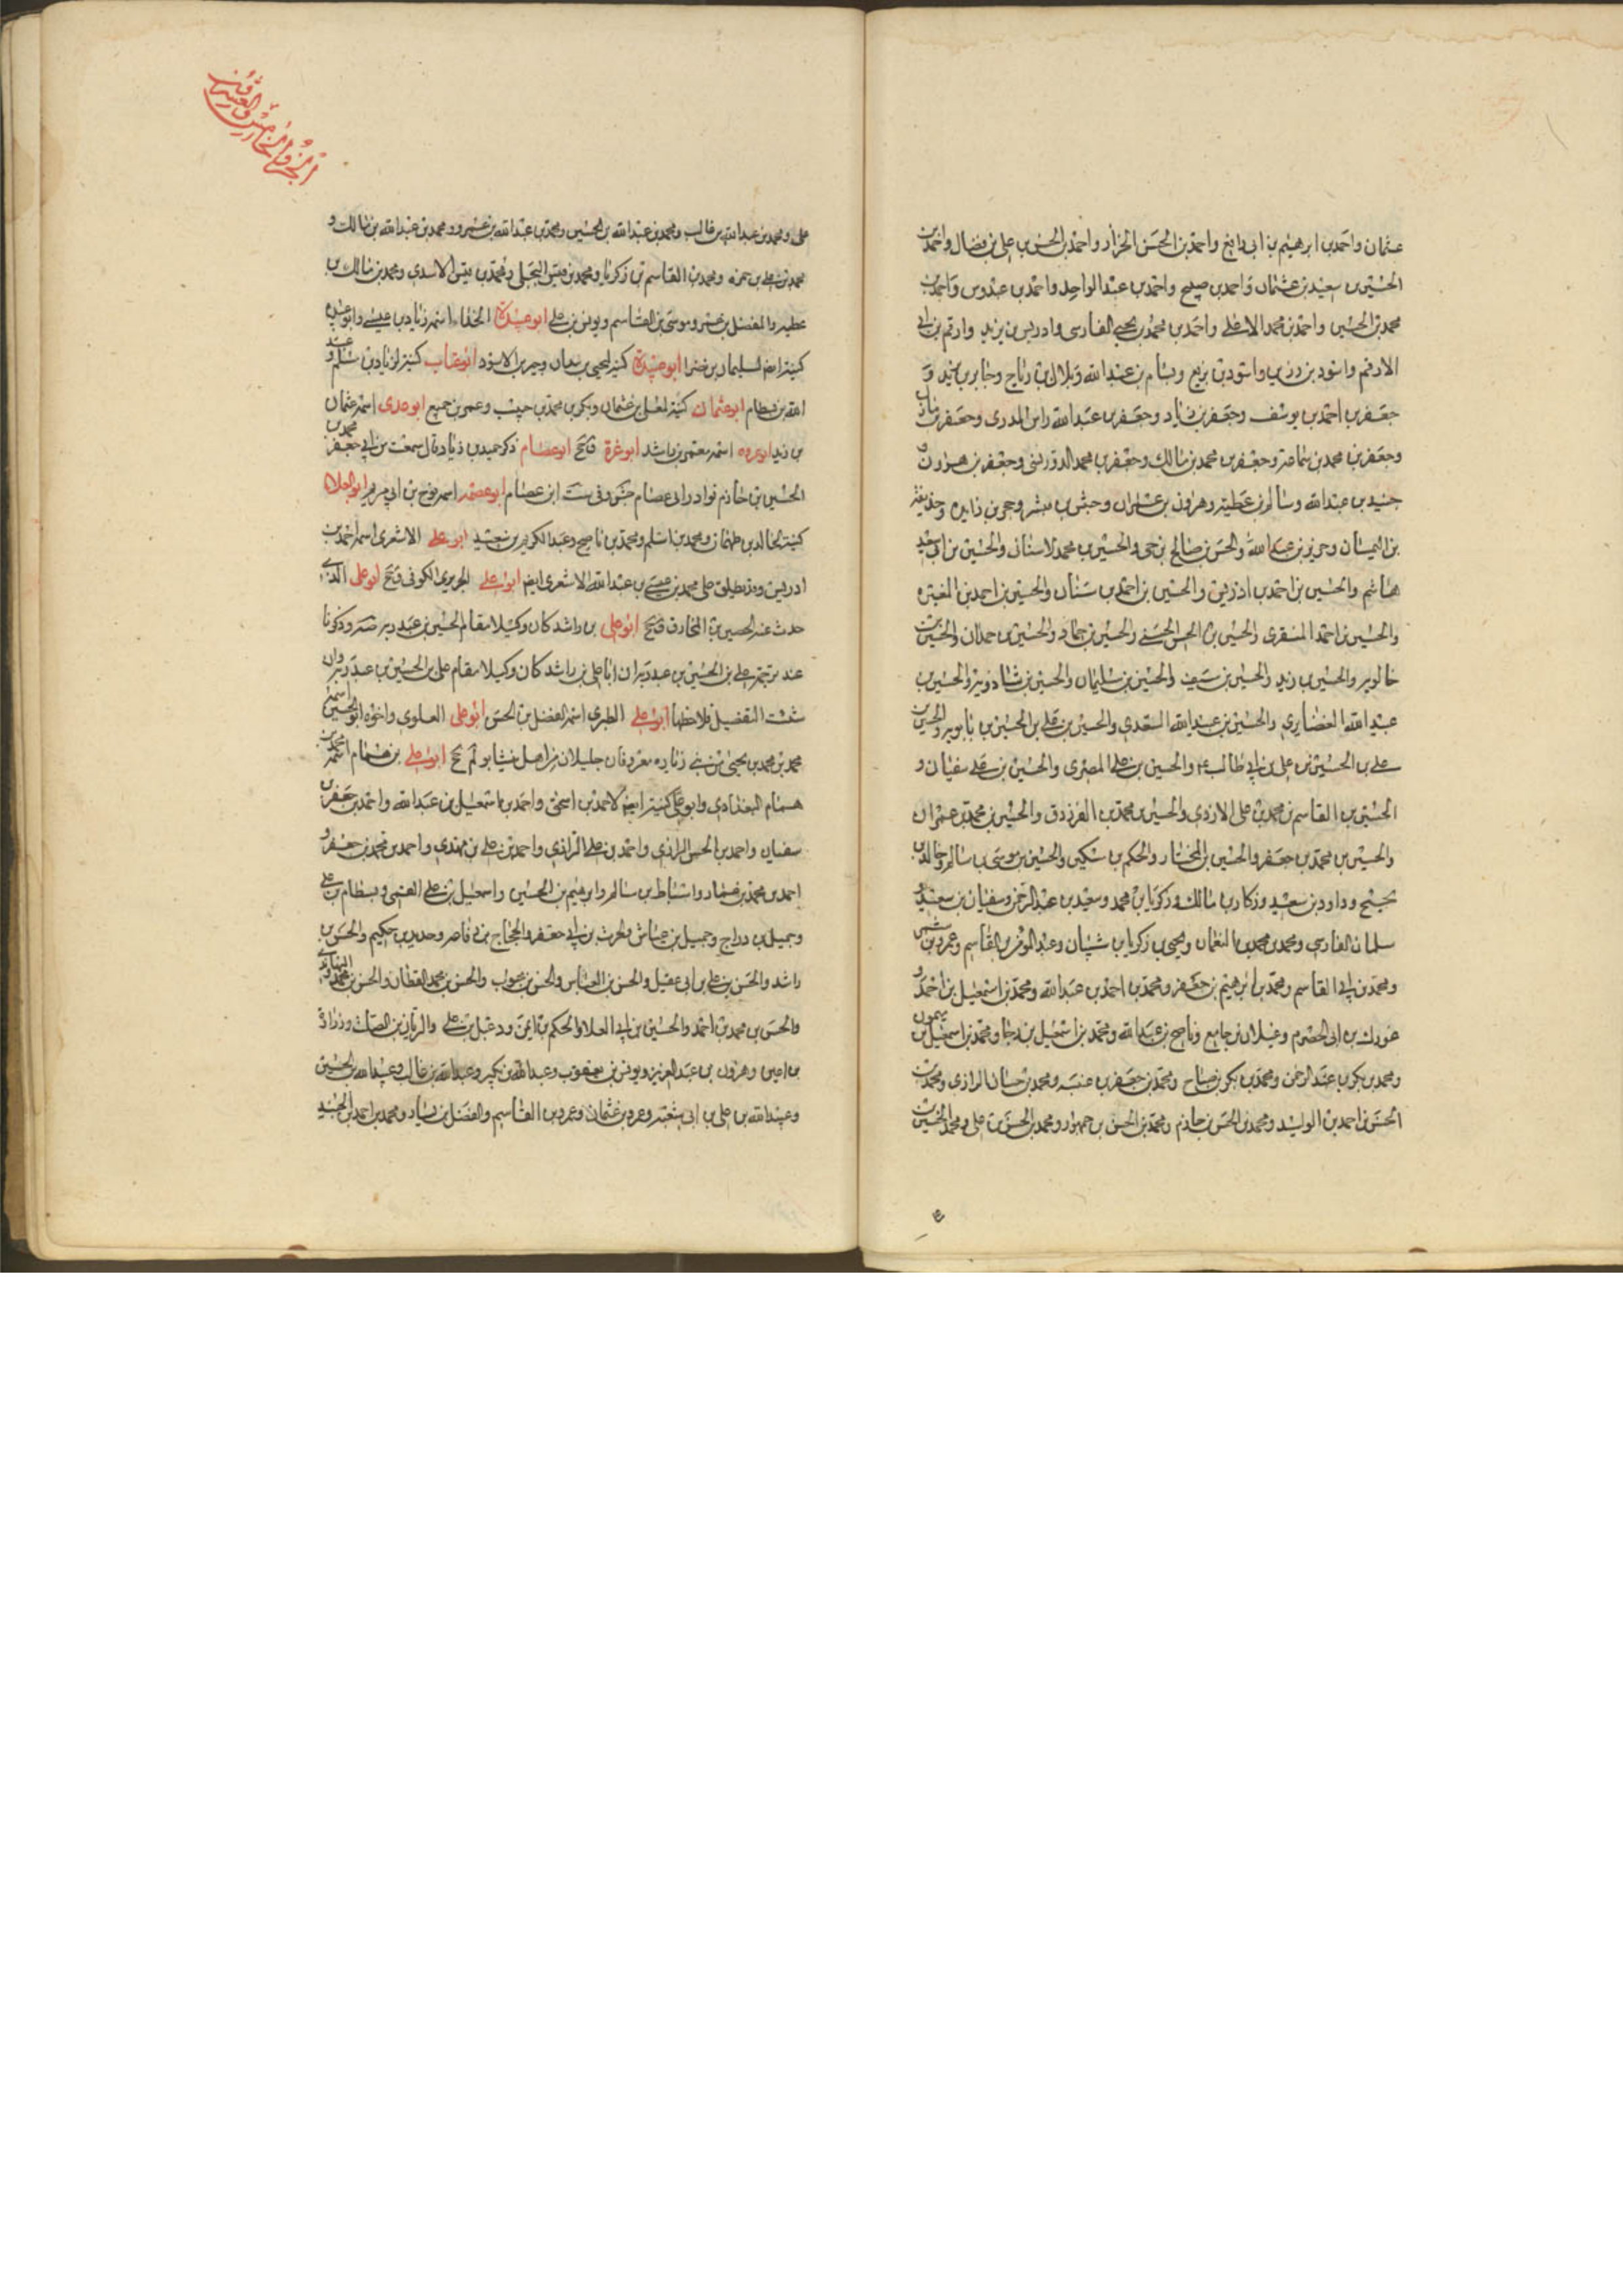 عثمان واحمد بن ابرهيم بن ابي رافع واحمد بن الحسن الخزاز واحمد بن الحسن بن علي بن فضال واحمد بن
الحسين بن سعيد بن عثمان واحمد بن صبيح واحمد بن عبد الواحد واحمد بن عبدوس واحمد بن
محمد بن الحسين واحمد بن محمد الاعلى واحمد بن محمد بن يحيى الفارسي وادريس بن يزيد وارقم بن ابي
الارقم واسود بن رزين واسود بن بريع وبسام بن عبد الله وبلال بن رباح وجابر بن يزيد و
جعفر بن احمد بن يوسف وجعفر بن زياد وجعفر بن عبد الله راس المدري وجعفر بن مازن
وجعفر بن محمد بن سماعة وجعفر بن محمد بن مالك وجعفر بن محمد الدوريستي وجعفر بن هرون و
جنيد بن عبد الله وسالم بن عطية وهرون بن عمران وحبشي بن مبشر وحجر بن زايده وحذيفة
بن اليمان وحريز بن عبد الله والحسن بن صالح بن حي والحسين بن محمد الاسناني والحسين بن ابي سعيد
هاشم والحسين بن احمد بن ادريس والحسين بن احمد بن سنان والحسين بن احمد بن المغيره
والحسين بن احمد المنقري والحسين بن الحسن الحسني والحسين بن حماد والحسين بن حمدان والحسين بن
خالويه والحسين بن زيد والحسين بن سيف والحسين بن سليمان والحسين بن شاذويه والحسين بن
عبيد الله الغضايري والحسين بن عبيد الله السعدي والحسين بن علي بن الحسين بن بابويه والحسين بن
علي بن الحسين بن علي بن ابي طالب ع والحسين بن علي المصري والحسين بن علي سفيان و
الحسين بن القاسم بن محمد بن علي الازدي والحسين بن محمد بن الفرزدق والحسين بن محمد بن عمران
والحسين بن محمد بن جعفر والحسين بن المختار والحكم بن سكين والحسين بن موسى بن سالم وخالد بن
نجيح وداود بن سعيد وزكار بن مالك وزكريا بن محمد وسعيد بن عبد الرحمن وسفيان بن سعيد و
سلمان الفارسي ومحمد بن محمد بن النعمان ويحيى بن زكريا بن شيبان وعبد المومن بن القاسم وعمرو بن شمر
ومحمد بن ابي القاسم ومحمد بن ابرهيم بن جعفر ومحمد بن احمد بن عبد الله ومحمد بن اسمعيل بن احمد و
عورك بن ابي الحضرم وغيلان بن جامع وناصح بن عبد الله ومحمد بن اسمعيل بن رجا ومحمد بن اسمعيل بن ميمون
ومحمد بن بكر بن عبد الرحمن ومحمد بن بكر بن صباح ومحمد بن جعفر بن عنبسه ومحمد بن حسان الرازي ومحمد بن
الحسن بن احمد بن الوليد ومحمد بن الحسن بن حازم ومحمد بن الحسن بن جمهور ومحمد بن الحسن بن علي ومحمد بن الحسين بن
الجزو الخامس والعشرون
علي ومحمد بن عبد الله بن غالب ومحمد بن عبد الله بن الحسين ومحمد بن عبد الله بن عمرو ومحمد بن عبد الله بن مالك و
محمد بن علي بن حمزه ومحمد بن القاسم بن زكريا ومحمد بن قيس البجلي ومحمد بن قيس الاسدي ومحمد بن مالك بن
عطيه والمفضل بن عمر وموسى بن القاسم ويونس بن علي ابو عبيدة الحذاء اسمه زياد بن عيسى وابو عبيده
كنية ايضا لسليمان بن خضرا ابو عبيدة كنية ليحيى بن سعان وحبر بن الاسود ابو عتاب كنية لزياد بن سلم وعبد
الله بن بسطام ابو عثمان كنية لمعلى بن عثمان وبكر بن محمد بن حبيب وعمر بن جميع ابو عدي اسمه عثمان
بن زيد ابو عروه اسمه معتمر بن راشد ابو غرة ابو عصام ذكر حميد بن زياد قال سمعت من ابي جعفر محمد بن
الحسين بن حازم نوادر ابي عصام ابن عصام ابو عصمه اسمه نوح بن ابي مريم ابو العلا
كنية لخالد بن طهمان ومحمد بن اسلم ومحمد بن ناصح وعبد الكريم بن سعيد ابو علي الاشعري اسمه احمد بن
ادريس وقد تطلق على محمد بن عيسى بن عبد الله الاشعري ايضا ابو علي الجريري الكوفي ابو علي الذي
حدث عنه الحصين بن المخارق ابو علي بن راشد كان وكيلا مقام الحسين بن عبد ربه وذكرنا
عند ترجمة علي بن الحسين بن عبد ربه ان ابا علي بن راشد كان وكيلا مقام علي بن الحسين بن عبد ربه وان
شئت التفصيل فلاحظها ابو علي الطبري اسمه الفضل بن الحسن ابو علي العلوي واخوه ابو الحسين اسمه
محمد بن محمد بن يحيى من بني زباره معروفان جليلان من اهل نيشابور ابو علي بن همام اسمه محمد بن
همام البغدادي وابو علي كنية ايضا لاحمد بن اسحق واحمد بن اسمعيل بن عبد الله واحمد بن جعفر بن
سفيان واحمد بن الحسن الرازي واحمد بن علي الرازي واحمد بن علي بن مهدي واحمد بن محمد بن جعفر و
احمد بن محمد بن عمار واسباط بن سالم وابرهيم بن الحسين واسمعيل بن علي العمي وبسطام بن علي
وجميل بن دراج وجميل بن عياش وحرث بن ابي جعفر والحجاج بن ناصر وحديد بن حكيم والحسن بن
راشد والحسن بن علي بن ابي عقيل والحسن بن العباس والحسن بن محبوب والحسن بن محمد القطان والحسن بن محمد النهاوندي
والحسن بن محمد بن احمد والحسين بن ابي العلا والحكم بن ايمن ودعبل بن علي والريان بن الصلت وزرارة
بن اعين وهرون بن عبد العزيز ويونس بن يعقوب وعبد الله بن بكير وعبد الله بن غالب وعبيد الله بن الحسين
وعبيد الله بن علي بن ابي شعبه وعمرو بن عثمان وعمرو بن القاسم والفضل بن يسار ومحمد بن احمد بن الجنيد